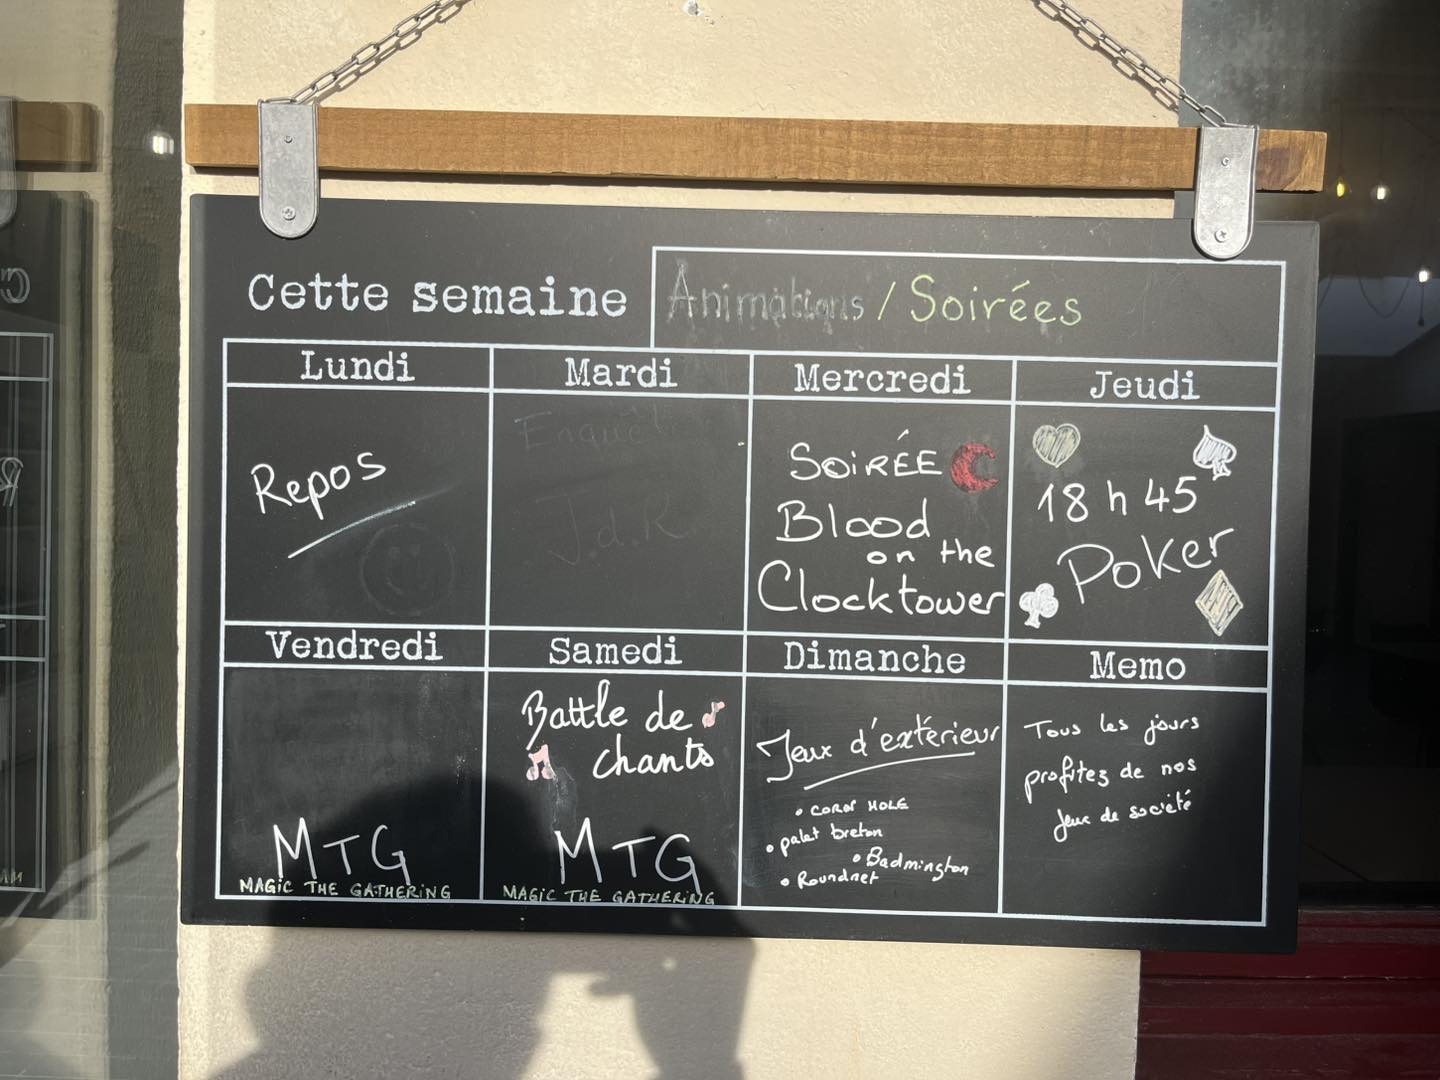 Cette semaine
Animations / Soirées
Lundi
Mardi
Mercredi
Jeudi
Repos
J.d.R
SOIRÉE
Blood
on the
Clocktower
18 h 45
Poker
Vendredi
Samedi
Dimanche
Memo
MTG
MAGIC THE GATHERING
Battle de
chants
MTG
MAGIC THE GATHERING
Jeux d'extérieur
• CORN HOLE
• palet breton
• Badmington
• Roundnet
Tous les jours
profitez de nos
Jeux de société